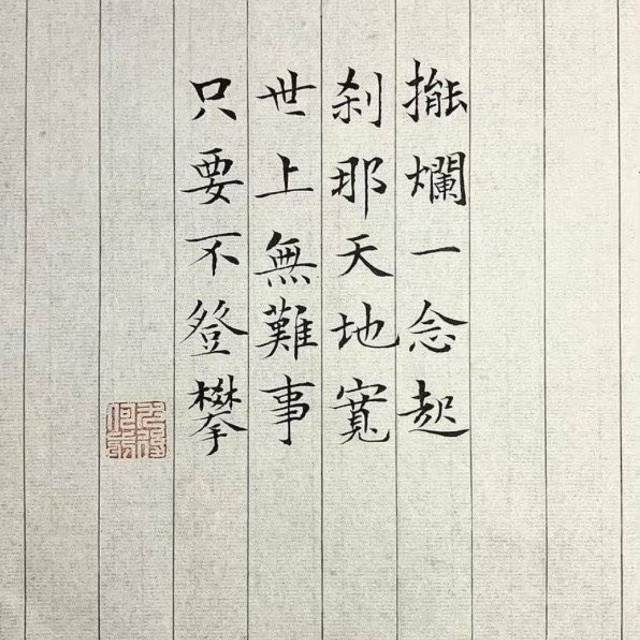 擺爛一念起
剎那天地寬
世上無難事
只要不登攀